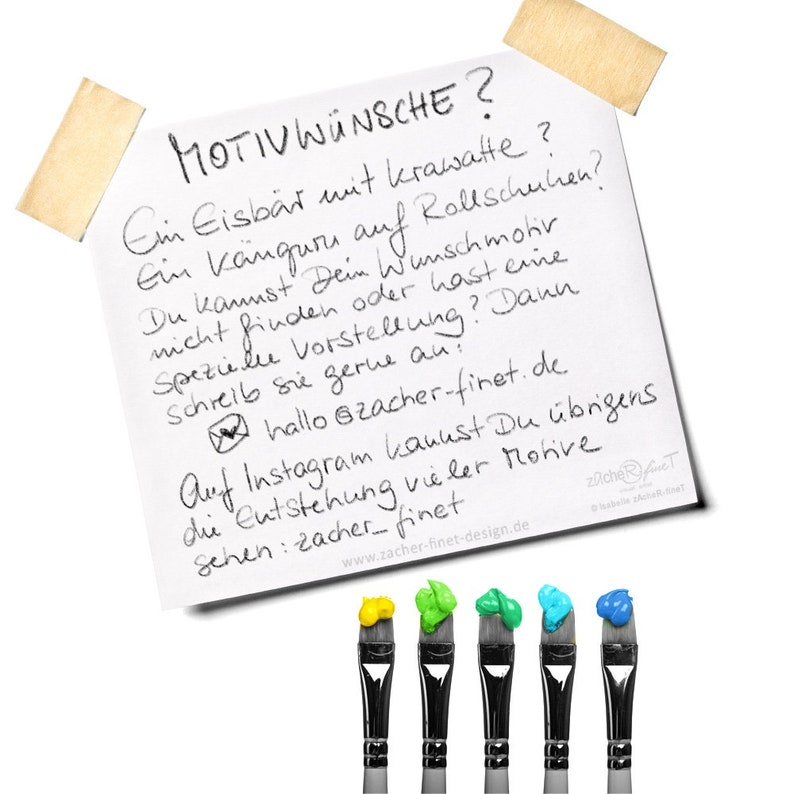 MOTIVWÜNSCHE?
Ein Eisbär mit Krawatte?
Ein Känguru auf Rollschuhen?
Du kannst Dein Wunschmotiv
nicht finden oder hast eine
spezielle Vorstellung? Dann
schreib sie gerne an:
hallo@zacher-finet.de
Auf Instagram kannst Du übrigens
die Entstehung vieler Motive
sehen: zacher_finet
zAcheR-fineT
© Isabelle zAcheR-fineT
www.zacher-finet-design.de